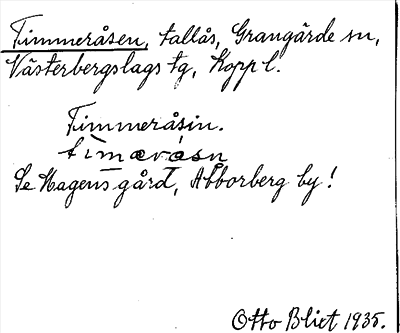 Timmeråsen, tallås, Grangärde sn,
Västerbergslags tg, Kopp l.
Timmeråsin.
timæråsn
Se Hagens gård, Abborberg by!
Otto Blixt 1935.